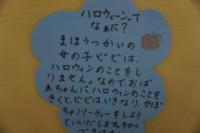 ハロウィーンって
なあに？
まほうつかいの
女の子ビビは、
ハロウィンのことをし
りません。なので、おば
あちゃんにハロウィンのことを
きくと、ビビはいきなり、かぼ
ちゃパーティーをしよう
といいだします。さあっ